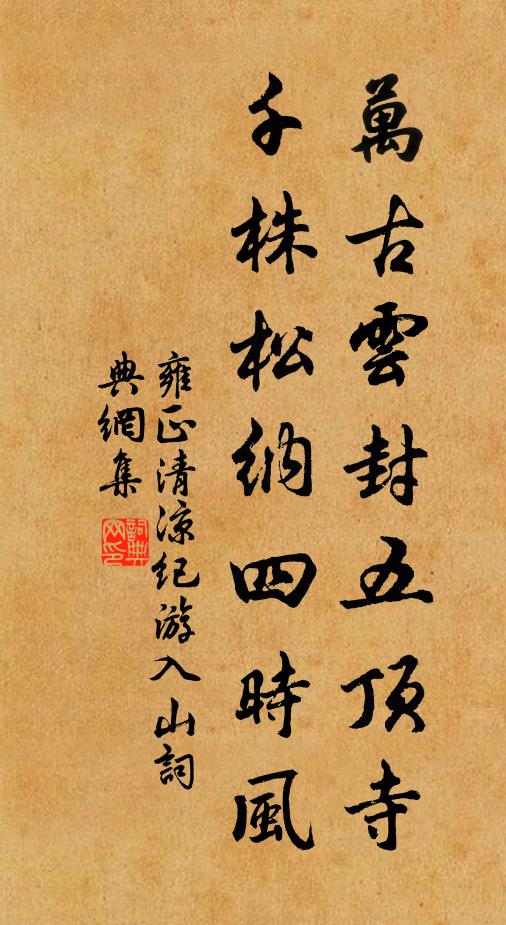 萬古雲封五頂寺
千株松納四時風
雍正清凉紀游入山詞
典網集
詞典網印